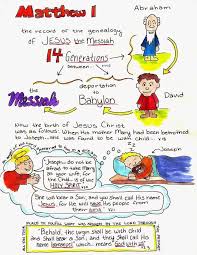 Matthew 1
Abraham
the record of the genealogy
of JESUS the Messiah
14 Generations
between...
the Messiah
deportation to Babylon
David
Now the birth of Jesus Christ
was as follows. When His mother Mary had been betrothed
to Joseph... was found to be with child...
Joseph
Joseph... do not be
afraid to take Mary
as your wife, for
the Child... is of the
HOLY SPIRIT
She will bear a Son; and you shall call His name
Jesus, for He will save His people from
their sins.
"Behold, the virgin shall be with child
and shall bear a Son, and they shall call His
name Immanuel" which... means, "God with us".